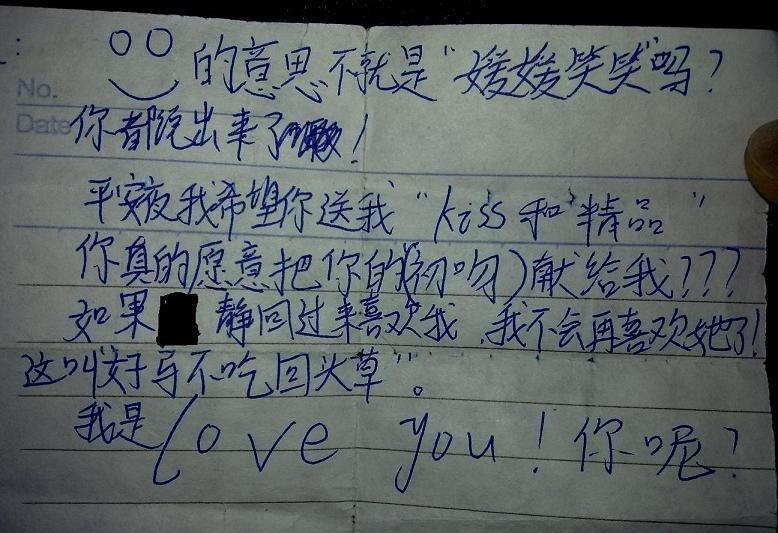 的意思不就是“媛媛笑笑”吗？
No.
Date
你都说出来了！
平安夜我希望你送我“kiss和精品”
你真的愿意把你的(初吻)献给我???
如果 静回过来喜欢我,我不会再喜欢她了!
这叫“好马不吃回头草”。
我是love you!你呢?